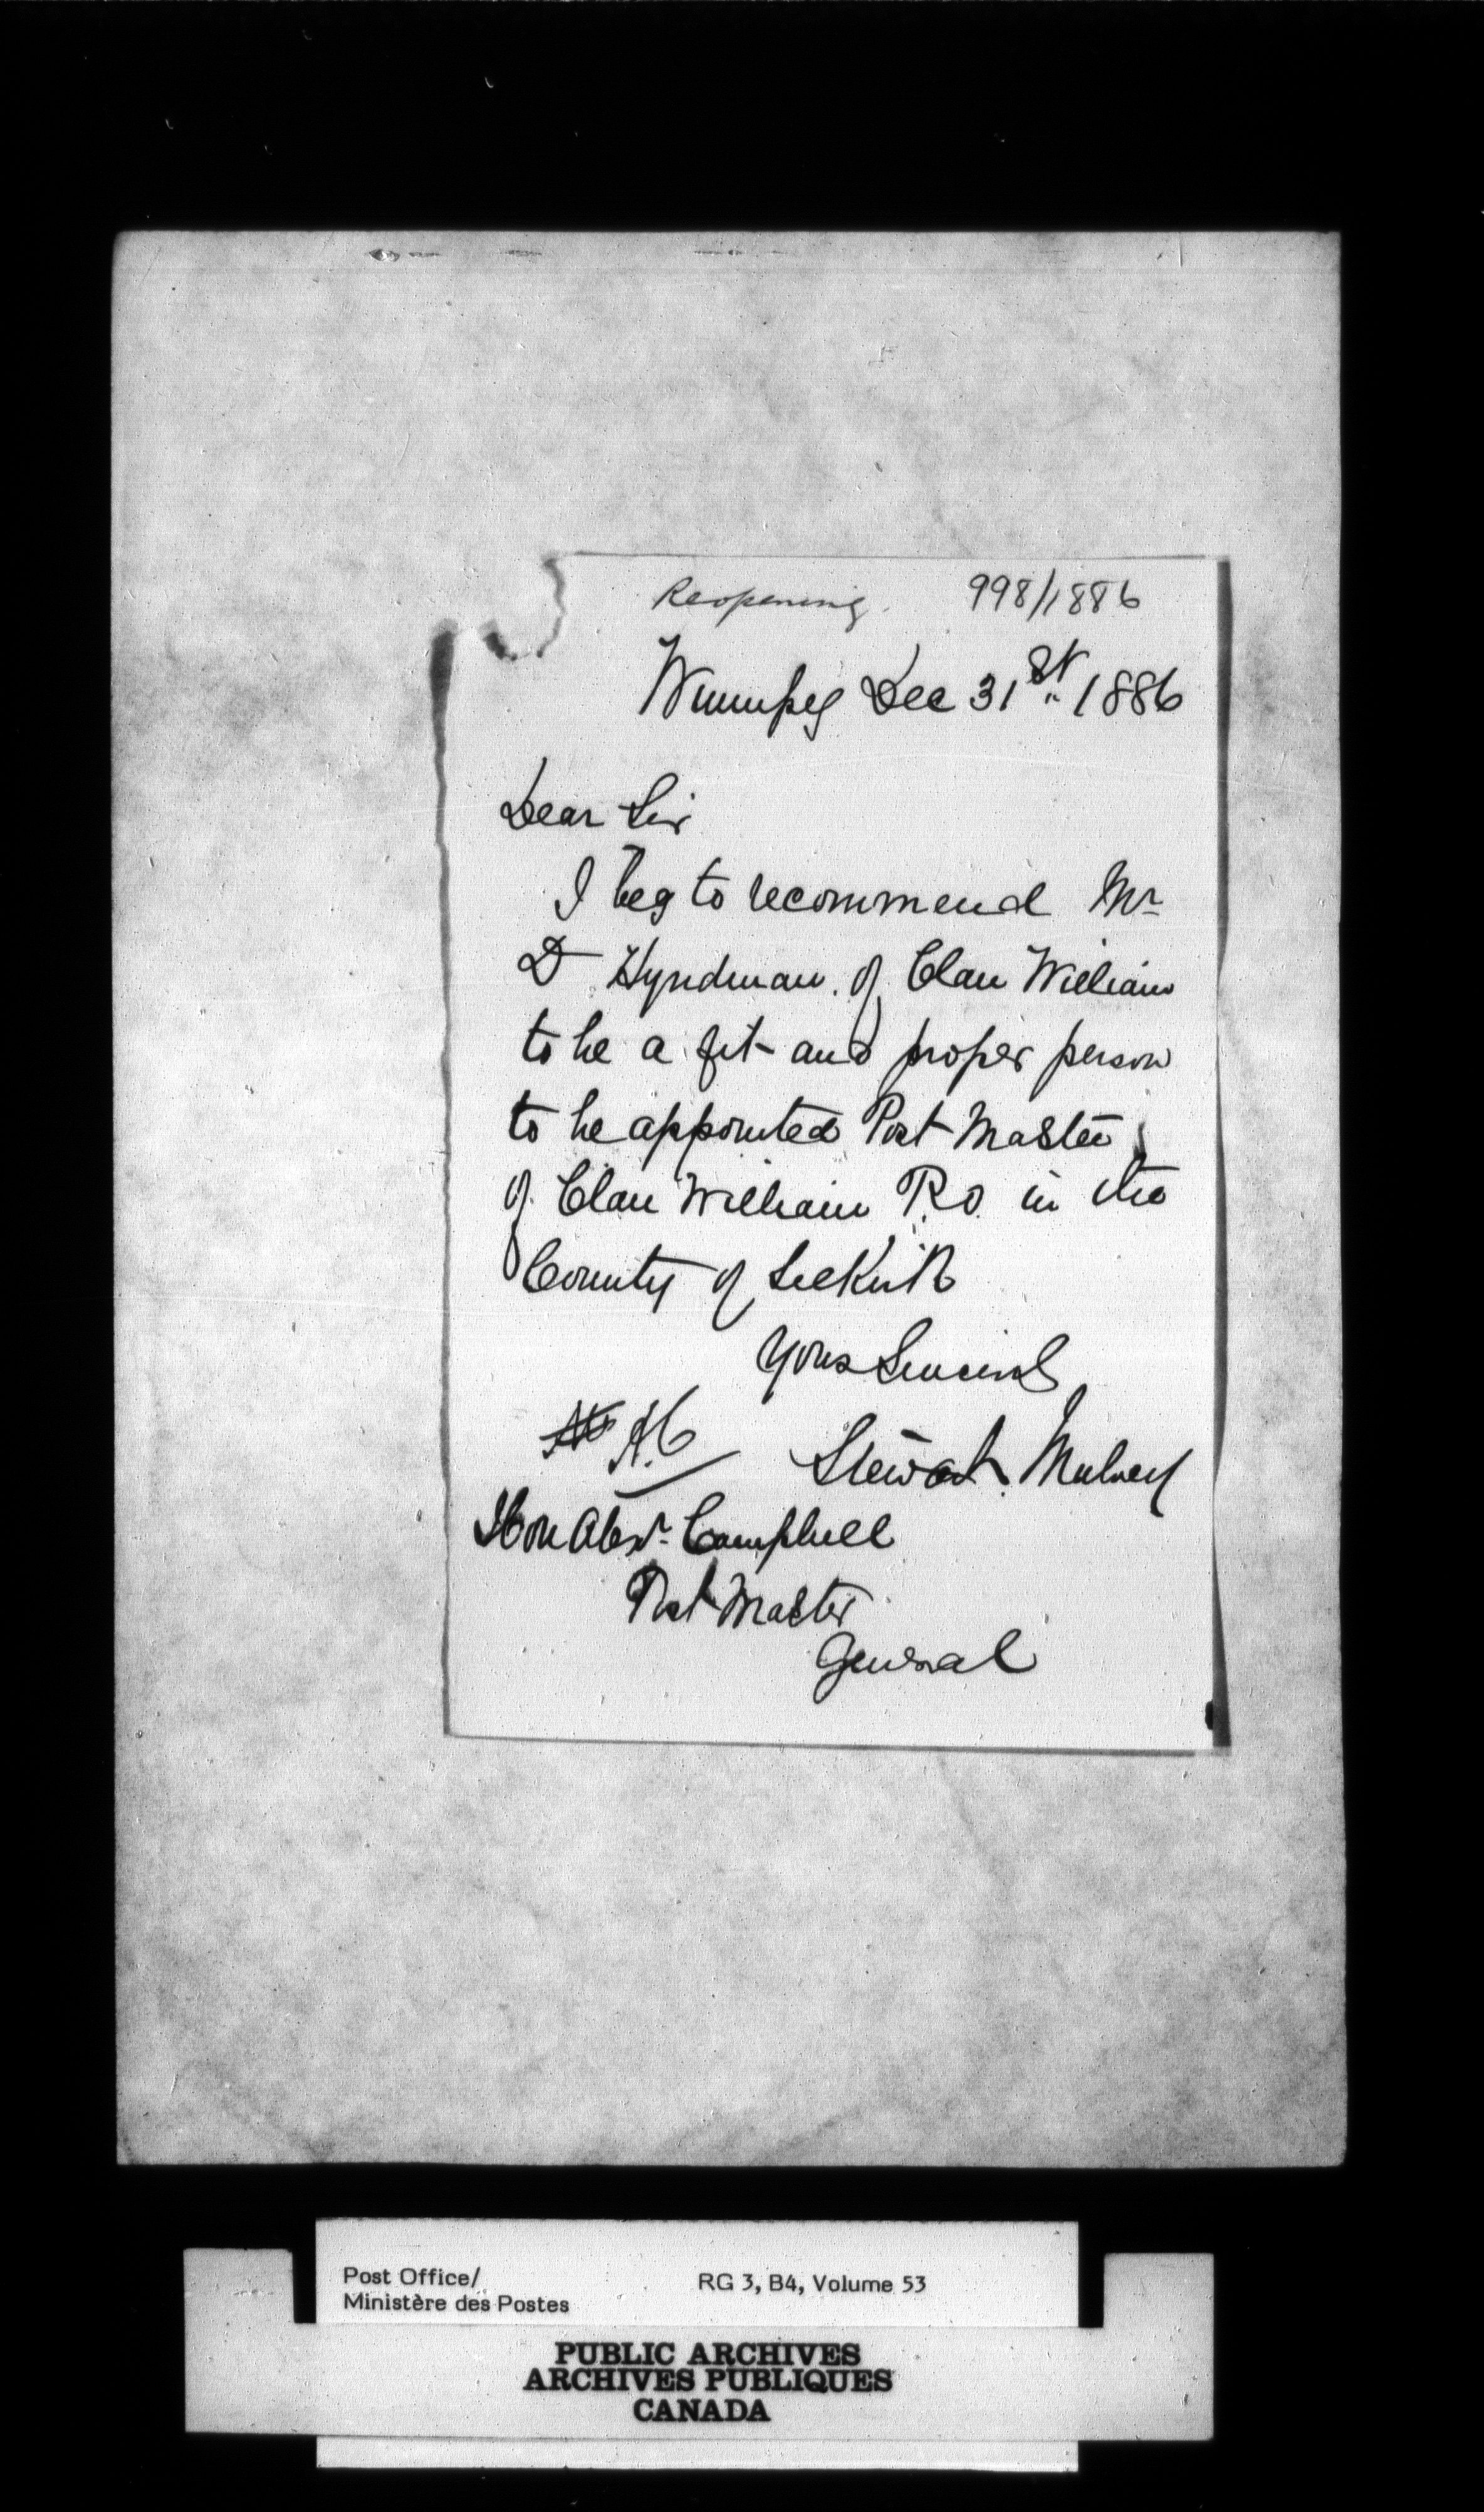 Reopening. 998/1886
Winnipeg Dec 31st 1886
Dear Sir
I beg to recommend Mr
D Hyndman. of Clan William
to be a fit and proper person
to be appointed Post Master
of Clan William P.O. in the
County of Selkirk
Yours Sincerely
A.C
Stewart Mulvey
Hon Alexr Campbell
Post Master
General
Post Office/ RG 3, B4, Volume 53
Ministère des Postes
PUBLIC ARCHIVES
ARCHIVES PUBLIQUES
CANADA